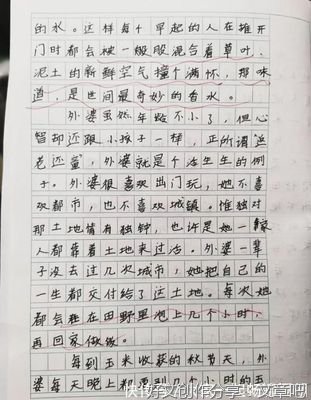 的水。这样每个早起的人在推开
门时都会被一股股混合着草叶、
泥土的新鲜空气撞个满怀，那味
道，是世间最奇妙的香水。
外婆虽然年龄不小了，但心
智却还跟小孩子一样，正所谓返
老还童，外婆就是个活生生的例
子。外婆很喜欢出门玩，她不喜
欢都市，也不喜欢城镇。惟独对
那土地情有独钟，也许是她一家
人都靠着土地来过活。外婆一辈
子没去过几次城市，她把自己的
一生都交付给了这土地。每次她
都会在田野里泡上几个小时，
再回家做饭。
每到玉米收获的秋节天，外
婆每天晚上都要剥几个小时的玉